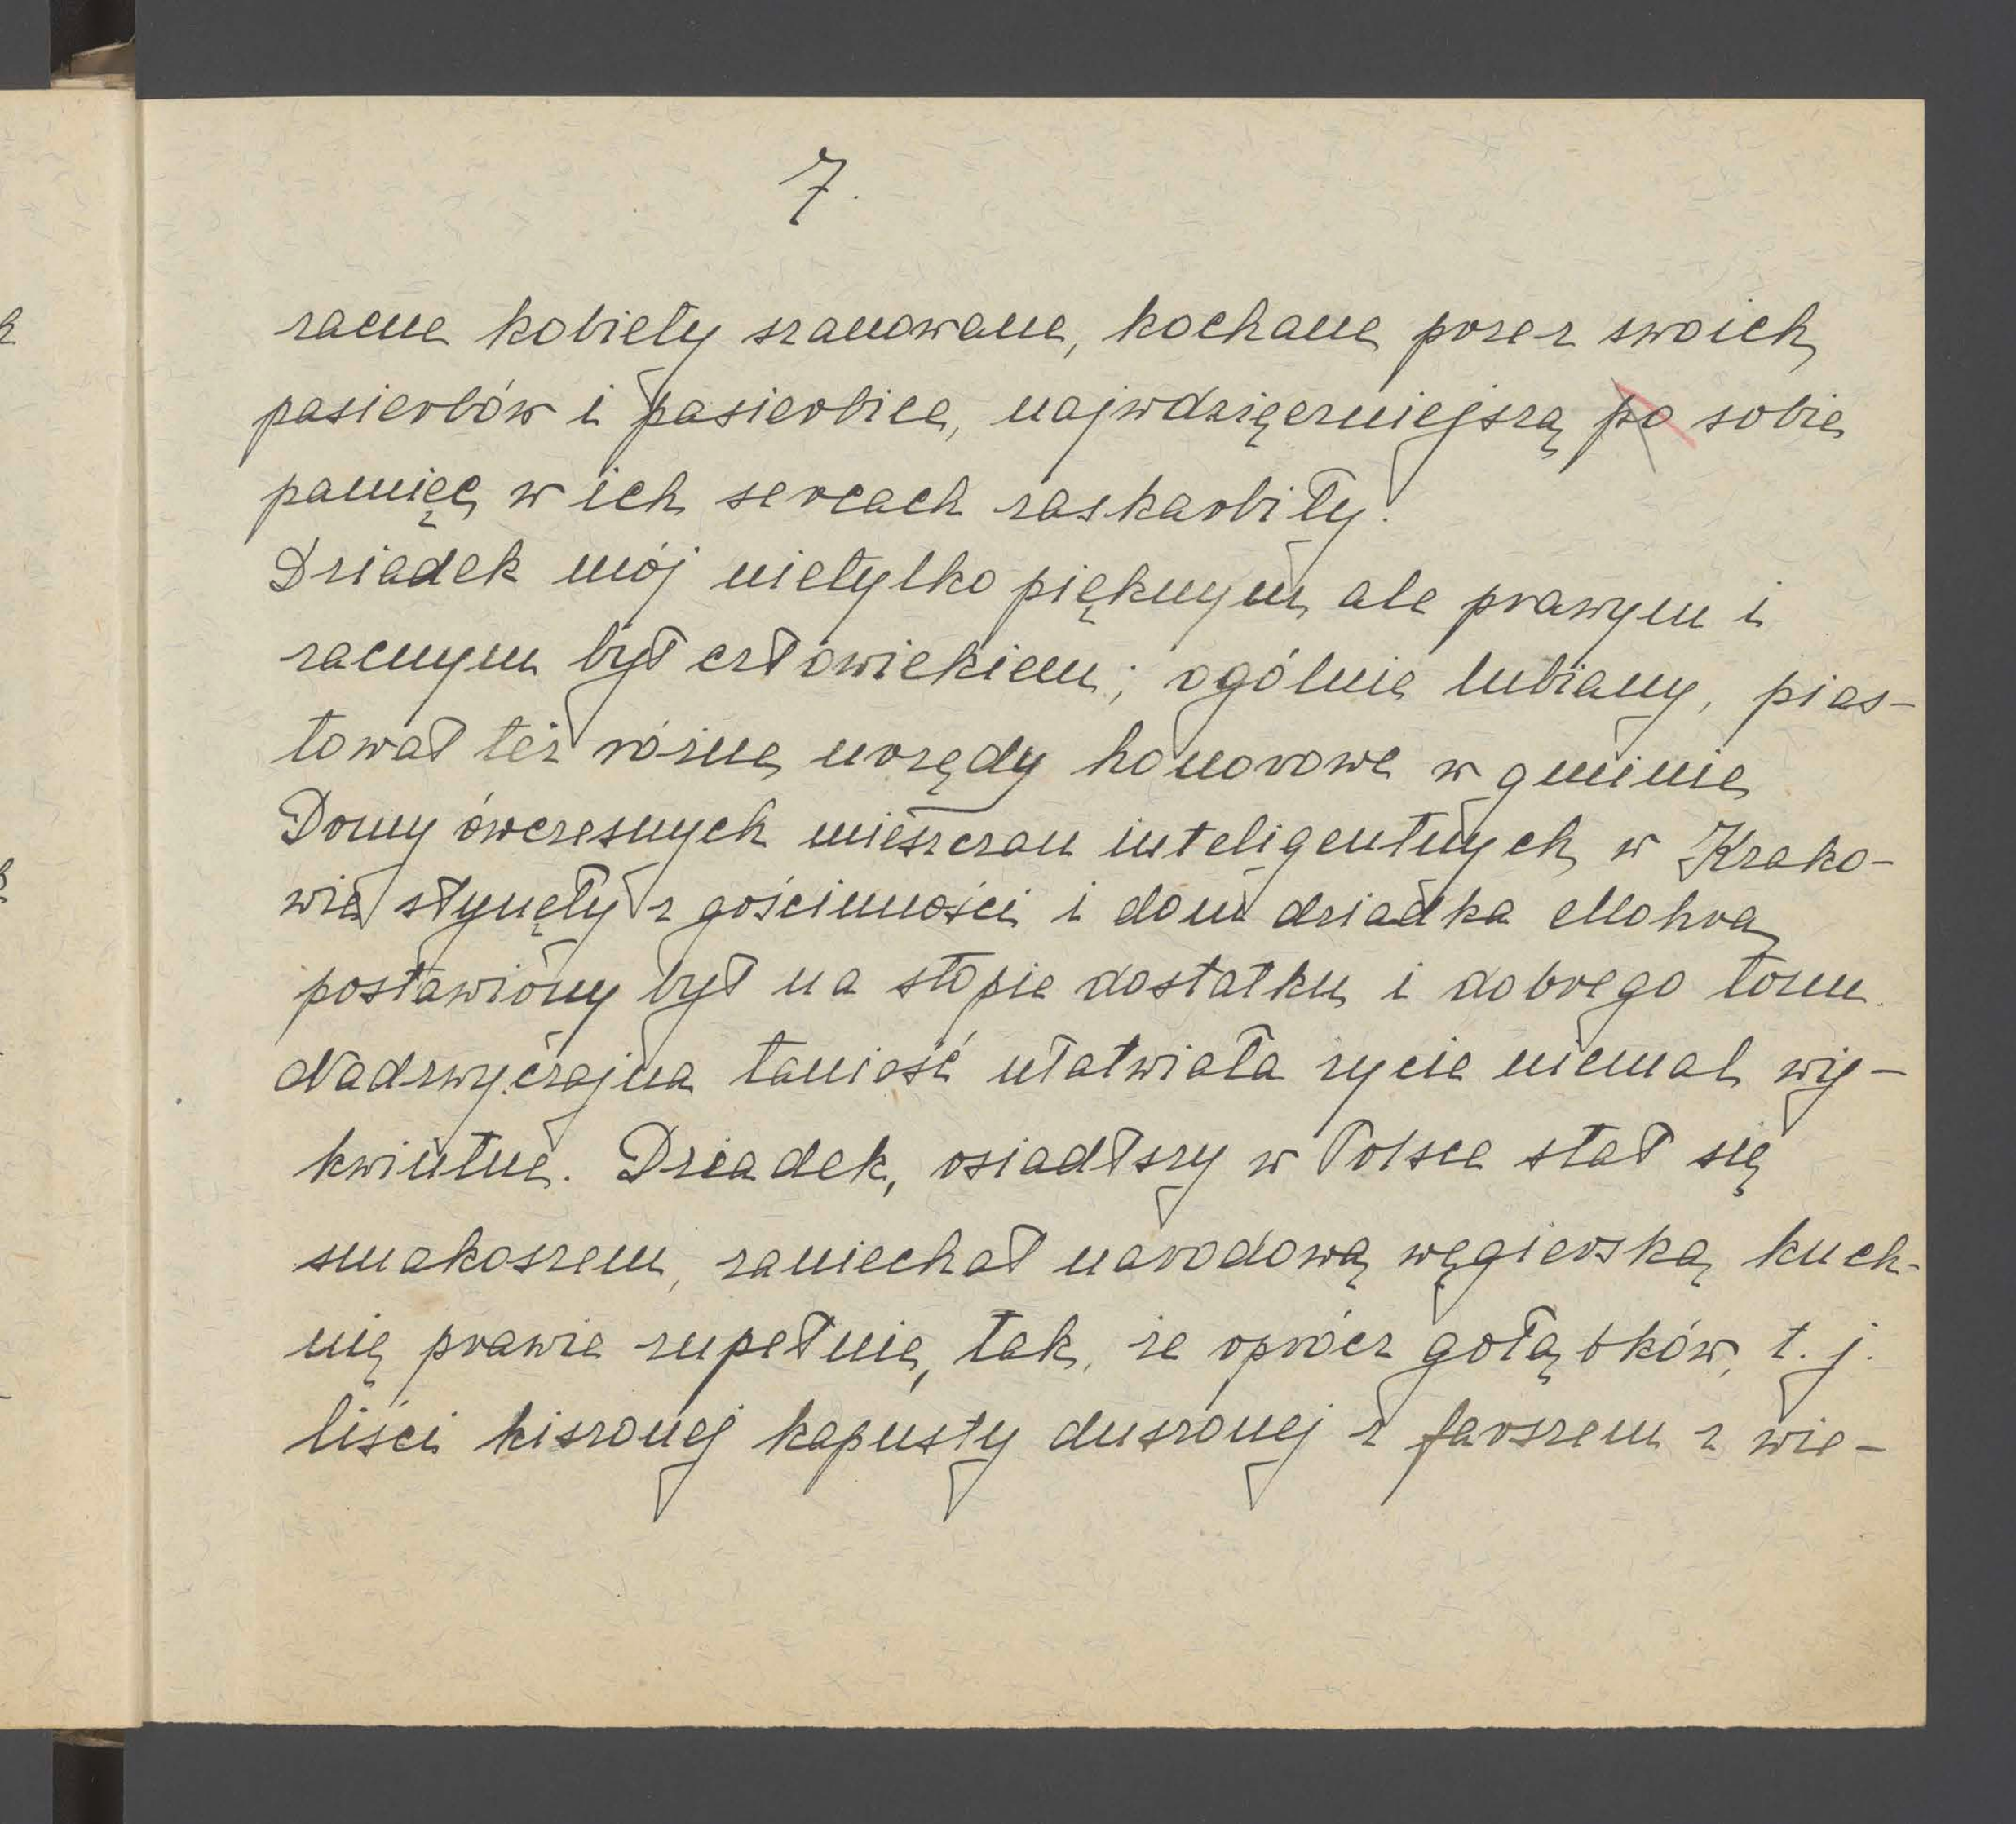 7.
zacne kobiety szanowane, kochane przez swoich
pasierbów i pasierbice, najwdzięczniejszą po sobie
pamięć w ich sercach zaskarbiły.
Dziadek mój nietylko pięknym ale prawym i
zacnym był człowiekiem; ogólnie lubiany, pias-
tował też różne urzędy honorowe w gminie
Domy ówczesnych mieszczan inteligentnych w Krako-
wie słynęły z gościnności i dom dziadka Mohra
postawiony był na stopie dostatku i dobrego tonu.
Nadzwyczajna taniość ułatwiała życie niemal wy-
kwintne. Dziadek, osiadłszy w Polsce stał się
smakoszem, zaniechał narodową węgierską kuch-
nię prawie zupełnie, tak, że oprócz gołąbków, t. j.
liści kiszonej kapusty duszonej z farszem z wie-